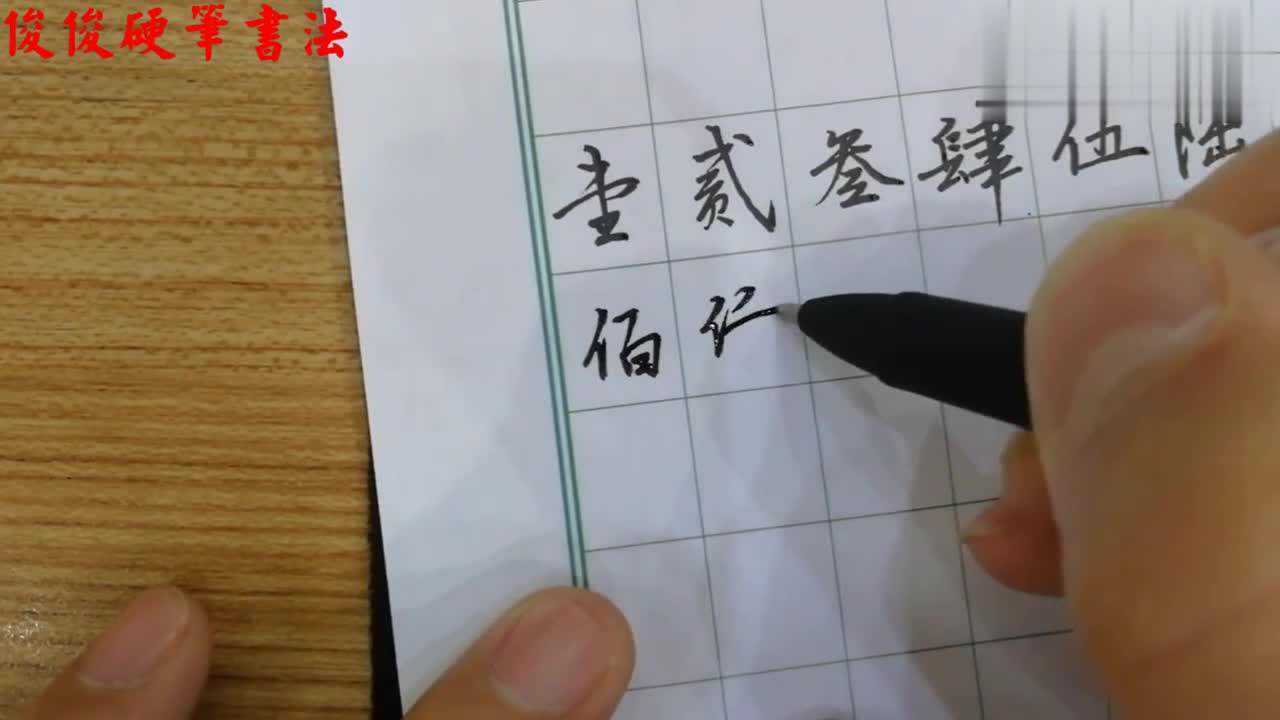 俊俊硬筆書法
壹贰叁肆伍陆
佰仁